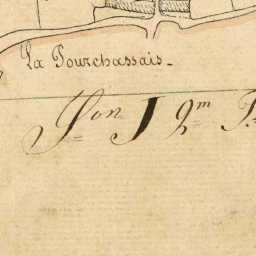 La Pourchassais_
S.on J 2.m